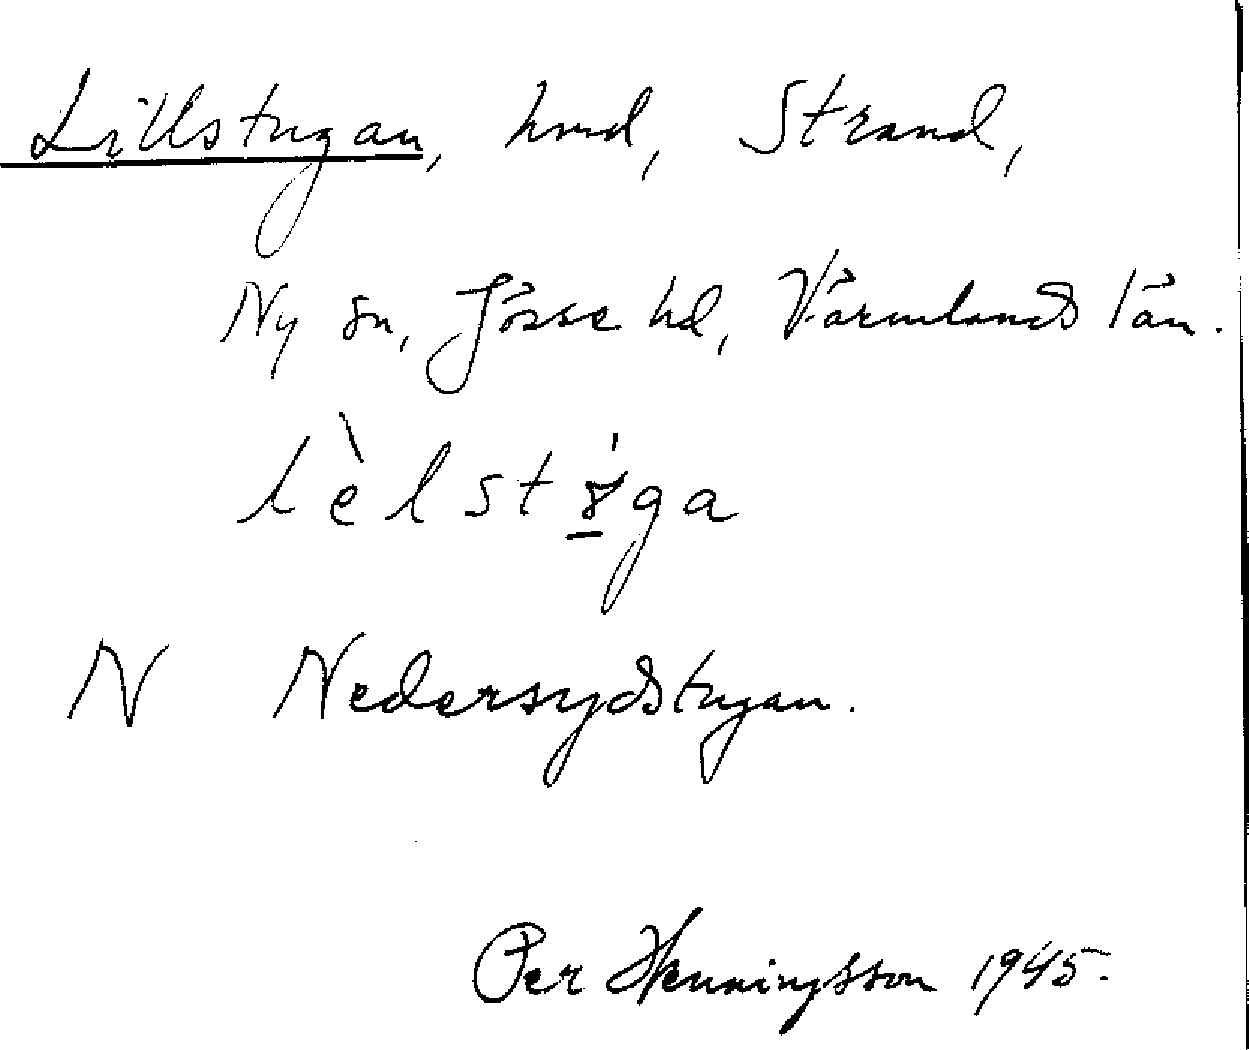 Lillstugan, hmd, Strand,
Ny sn, Jösse hd, Värmlands län.
N Nedersydstugan.
Per Henningsson 1945.